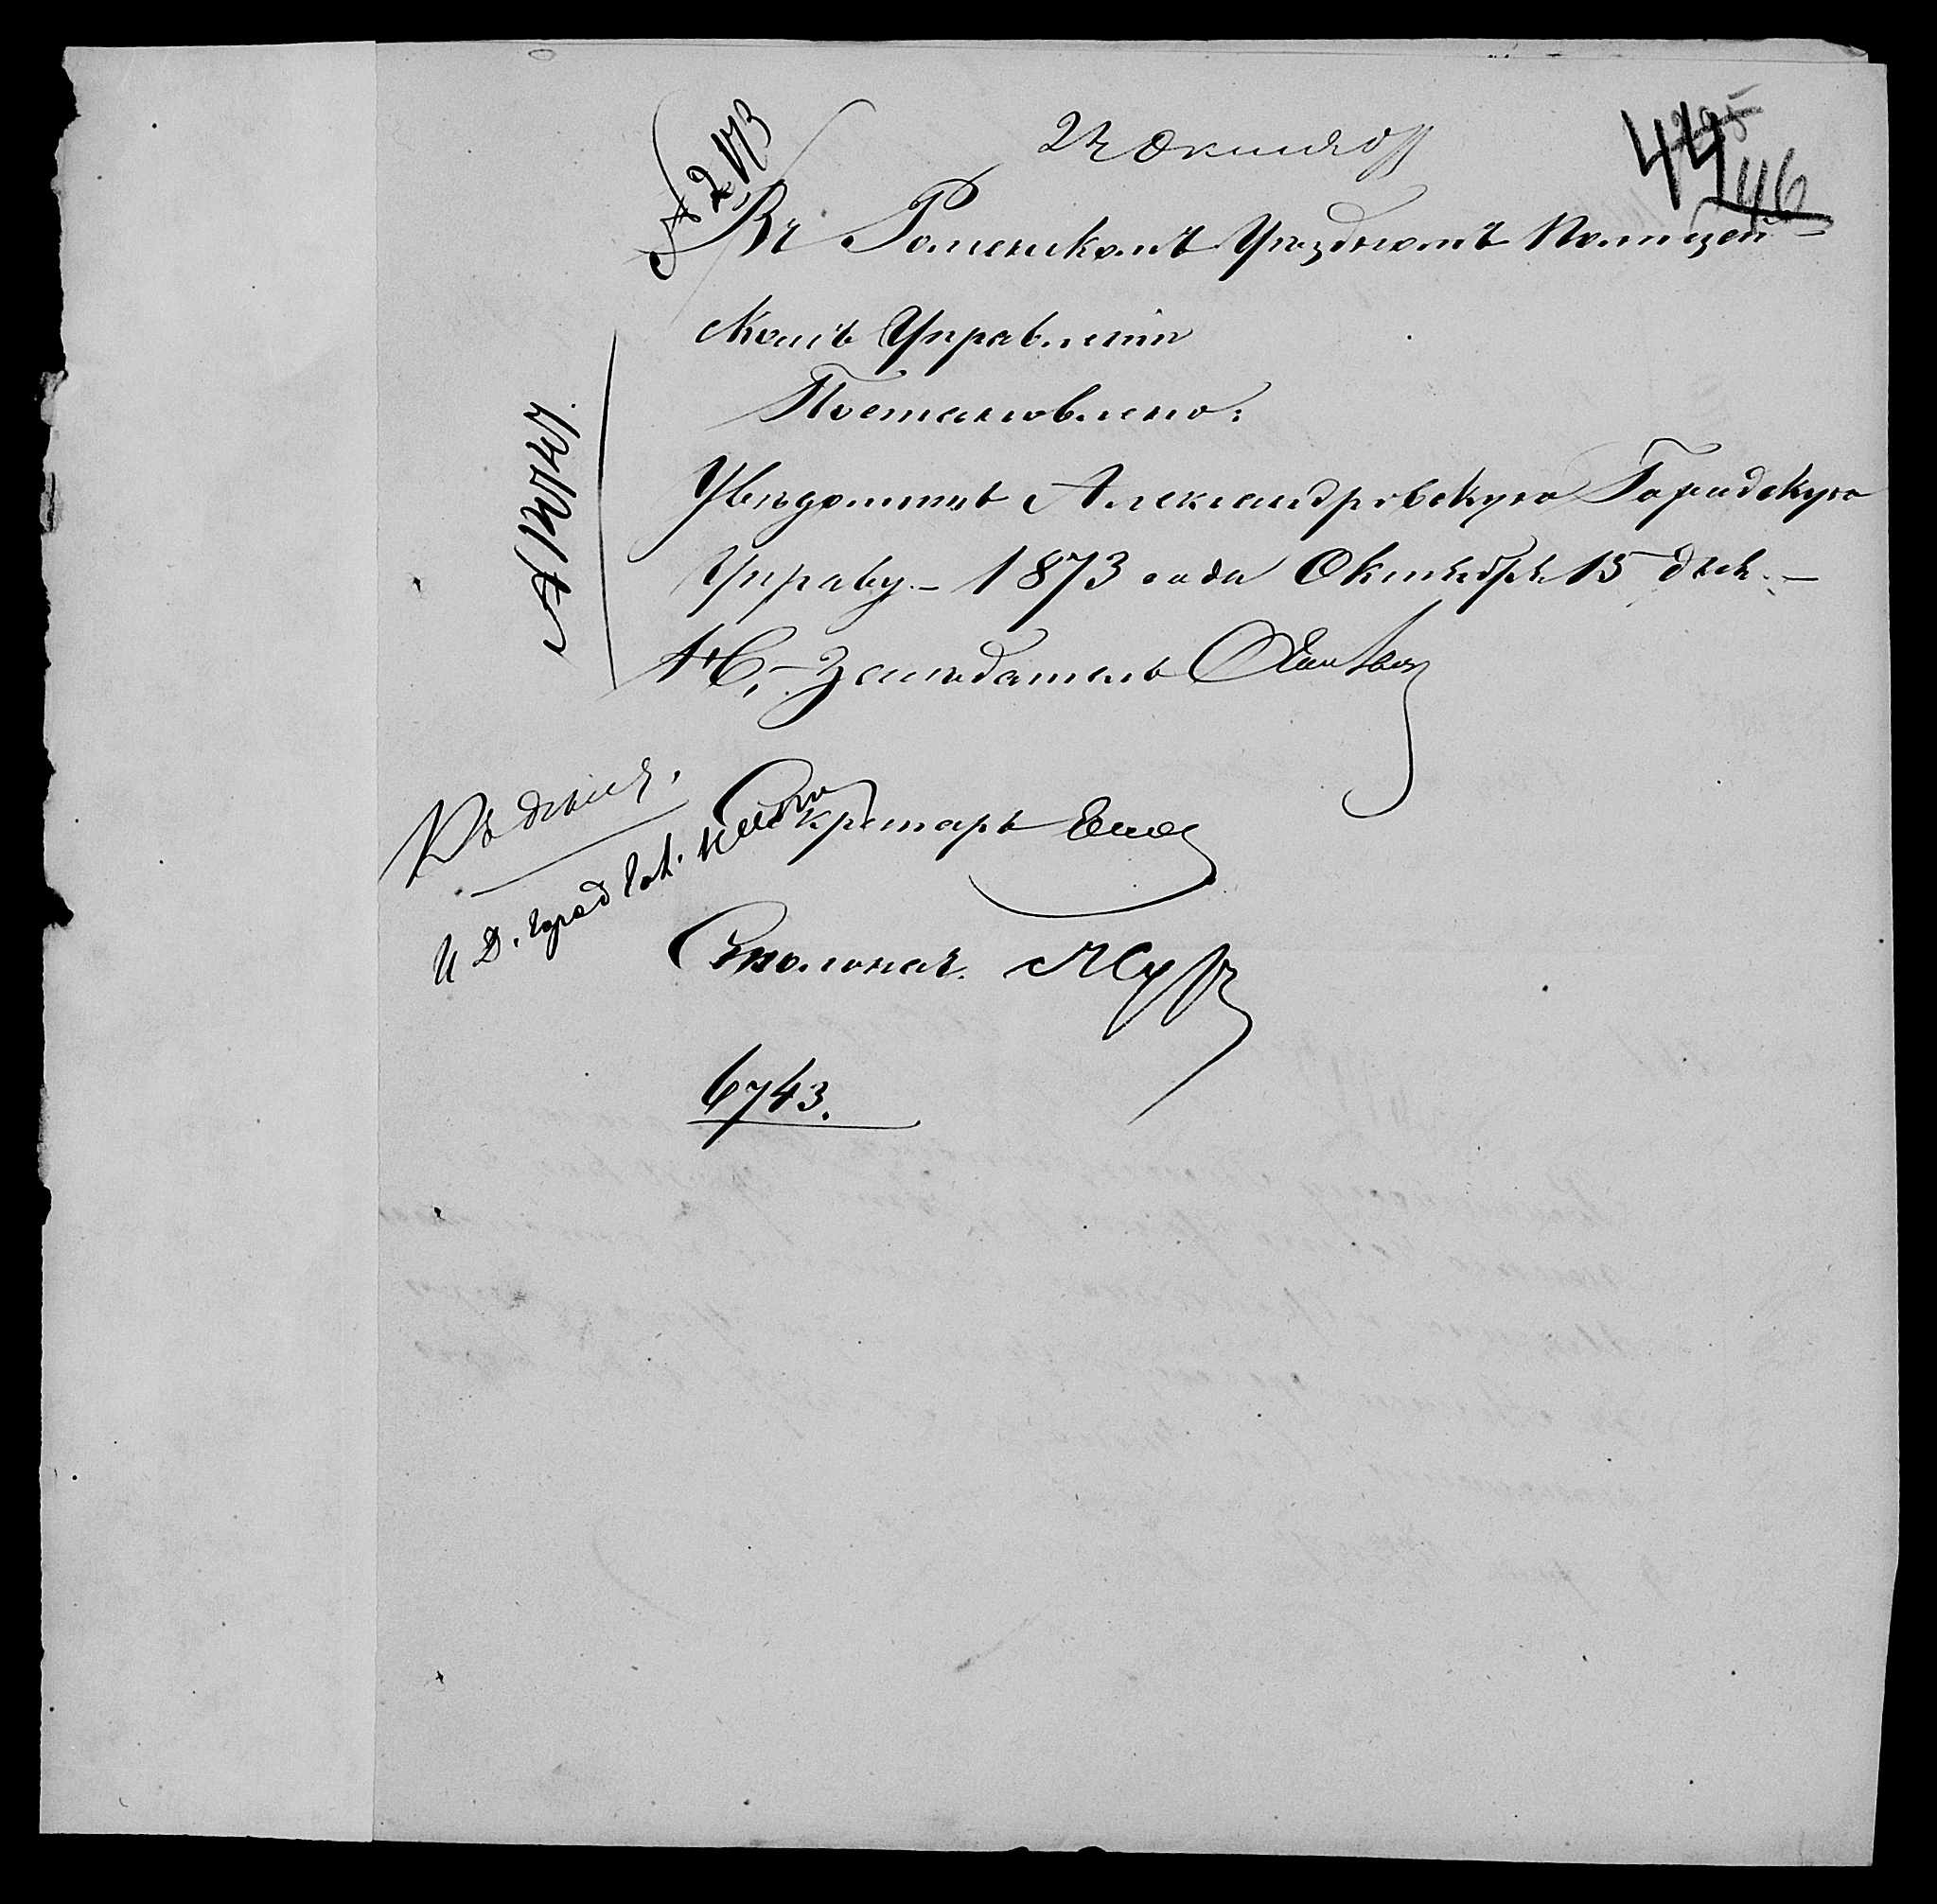 № 2173
22 Октября
44
46
Въ Роменскомъ Уѣздномъ Полицей-
скомъ Управленіи
Постановлено:
Увѣдомить Александровскую Городскую
Управу. – 1873 года Октября 15 дня. –
Засѣдатель
Къ дѣлу.
Секретарь
И. Д. город гол.
Столонач.
6743.